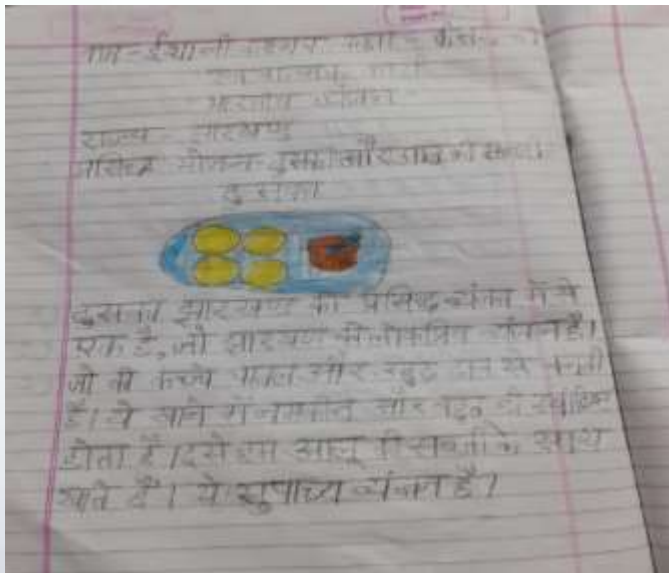 भारतीय व्यंजन
राज्य - झारखण्ड
प्रसिद्ध भोजन - दुसका और आलू की सब्जी
दुसका
दुसका झारखण्ड का प्रसिद्ध व्यंजन में से
एक है, जो झारखण्ड में लोकप्रिय व्यंजन है।
जो की कच्चे चावल और उड़द दाल से बनती
है। ये खाने में नमकीन और बहुत ही स्वादिष्ट
होता है। इसे हम आलू की सब्जी के साथ
खाते हैं। ये सुपाच्य व्यंजन है।